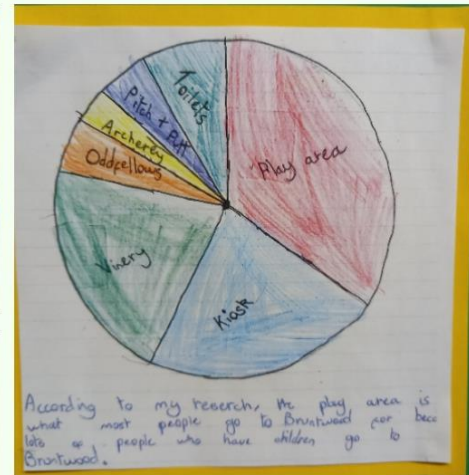 Toilets
Pitch + Putt
Archery
Oddfellows
Play area
Vinery
Kiosk
According to my reserch, the play area is
what most people go to Bruntwood for beca
lots of people who have children go to
Bruntwood.